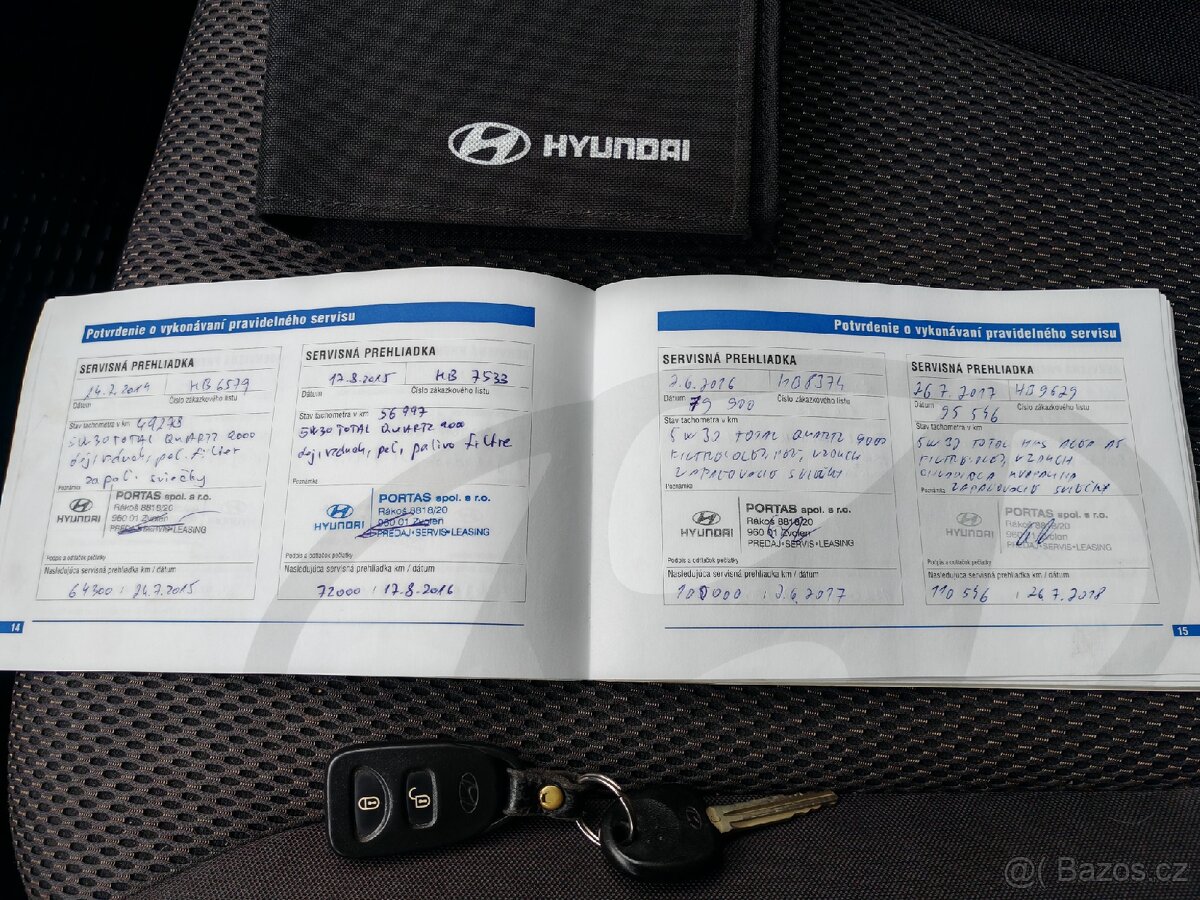 HYUNDAI
Potvrdenie o vykonávaní pravidelného servisu
SERVISNÁ PREHLIADKA
24.7.2014 HB 6579
Dátum Číslo zákazkového listu
Stav tachometra v km 49278
5W30 TOTAL QUARTZ 9000
olej, vzduch, peľ. filter
zapaľ. sviečky
Poznámka
HYUNDAI
PORTAS spol. s r.o.
Rákoš 8818/20
960 01 Zvolen
PREDAJ•SERVIS•LEASING
Podpis a odtlačok pečiatky
Nasledujúca servisná prehliadka km / dátum
64300 : 24.7.2015
14
SERVISNÁ PREHLIADKA
17.8.2015 HB 7533
Dátum Číslo zákazkového listu
Stav tachometra v km 56997
5W30 TOTAL QUARTZ 9000
olej, vzduch, peľ, palivo filtre
Poznámka
HYUNDAI
PORTAS spol. s r.o.
Rákoš 8818/20
960 01 Zvolen
PREDAJ•SERVIS•LEASING
Podpis a odtlačok pečiatky
Nasledujúca servisná prehliadka km / dátum
72000 : 17.8.2016
Potvrdenie o vykonávaní pravidelného servisu
SERVISNÁ PREHLIADKA
2.6.2016 HB8374
Dátum Číslo zákazkového listu
79 900
Stav tachometra v km
5W30 TOTAL QUARTZ 9000
FILTROLOEJ, VZDUCH
ZAPAĽOVACIE SVIEČKY
Poznámka
HYUNDAI
PORTAS spol. s r.o.
Rákoš 8818/20
960 01 Zvolen
PREDAJ•SERVIS•LEASING
Podpis a odtlačok pečiatky
Nasledujúca servisná prehliadka km / dátum
100000 : 2.6.2017
SERVISNÁ PREHLIADKA
26.7.2017 HB9629
Dátum Číslo zákazkového listu
95 546
Stav tachometra v km
5W30 TOTAL
VZDUCH
Poznámka ZAPAĽOVACIE SVIEČKY
HYUNDAI
PORTAS spol. s r.o.
Rákoš 8818/20
960 01 Zvolen
PREDAJ•SERVIS•LEASING
Podpis a odtlačok pečiatky
Nasledujúca servisná prehliadka km / dátum
110 546 : 26.7.2018
15
@( Bazos.cz